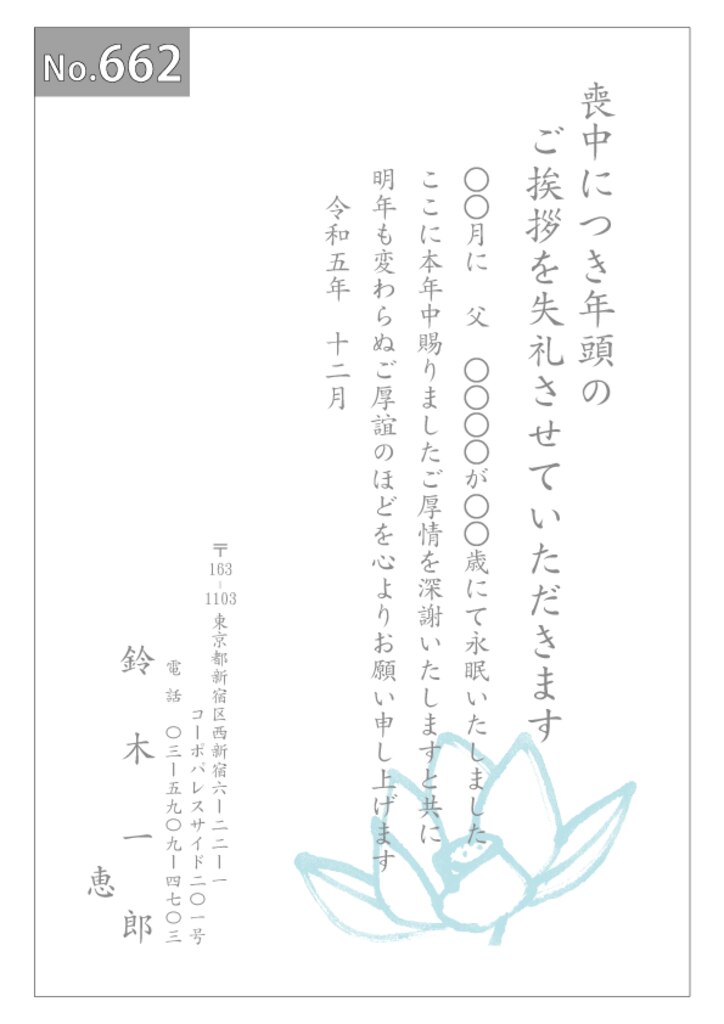 No.662
喪中につき年頭の
ご挨拶を失礼させていただきます
〇〇月に 父 〇〇〇〇が〇〇歳にて永眠いたしました
ここに本年中賜りましたご厚情を深謝いたしますと共に
明年も変わらぬご厚誼のほどを心よりお願い申し上げます
令和五年 十二月
〒163-1103 東京都新宿区西新宿六ー二二ー一
コーポパレスサイド二〇一号
電話 〇三ー五九〇九ー四七〇三
鈴木一郎
恵